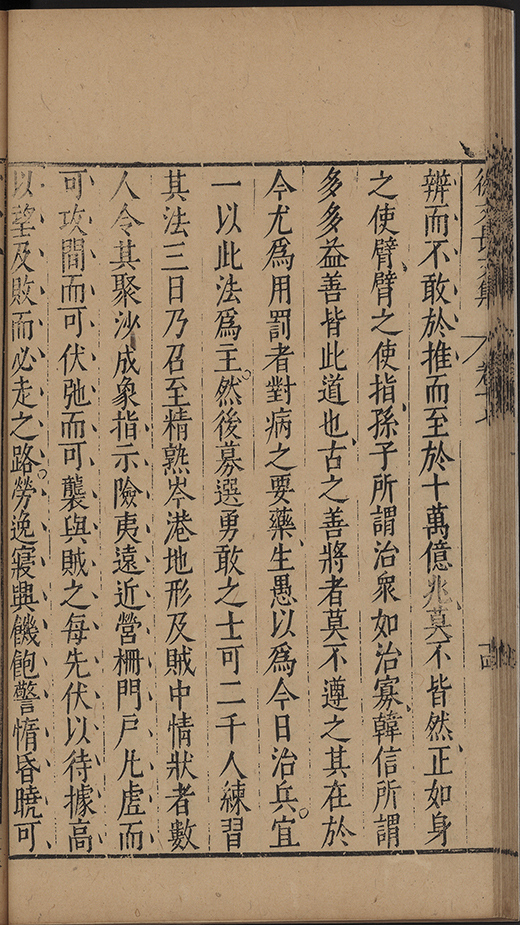 徐文長文集 卷十七 十四
辨而不敢於推而至於十萬億兆莫不皆然正如身
之使臂臂之使指孫子所謂治衆如治寡韓信所謂
多多益善皆此道也古之善將者莫不遵之其在於
今尤爲用罰者對病之要藥生愚以爲今日治兵宜
一以此法爲主然後募選勇敢之士可二千人練習
其法三日乃召至精熟岑港地形及賊中情狀者數
人令其聚沙成象指示險夷遠近營柵門戶凢虛而
可攻間而可伏弛而可襲與賊之每先伏以待據高
以望及敗而必走之路勞逸寢興饑飽警惰昏曉可